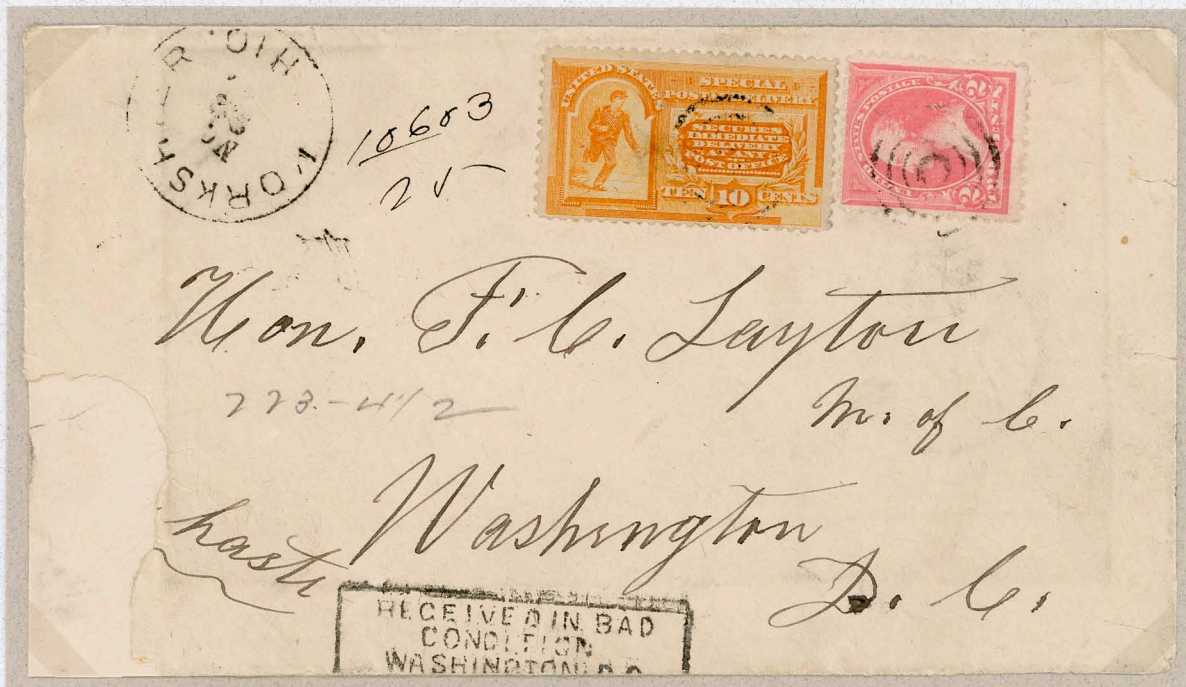 YORKSHIRE OHIO
10603
25
UNITED STATES
SPECIAL
POSTAL DELIVERY
SECURES
IMMEDIATE
DELIVERY
AT ANY
POST OFFICE
TEN 10 CENTS
2 2
Hon. F. C. Layton
223-4 1/2
M. of C.
Washington
D. C.
haste
RECEIVED IN BAD
CONDITION
WASHINGTON, D.C.